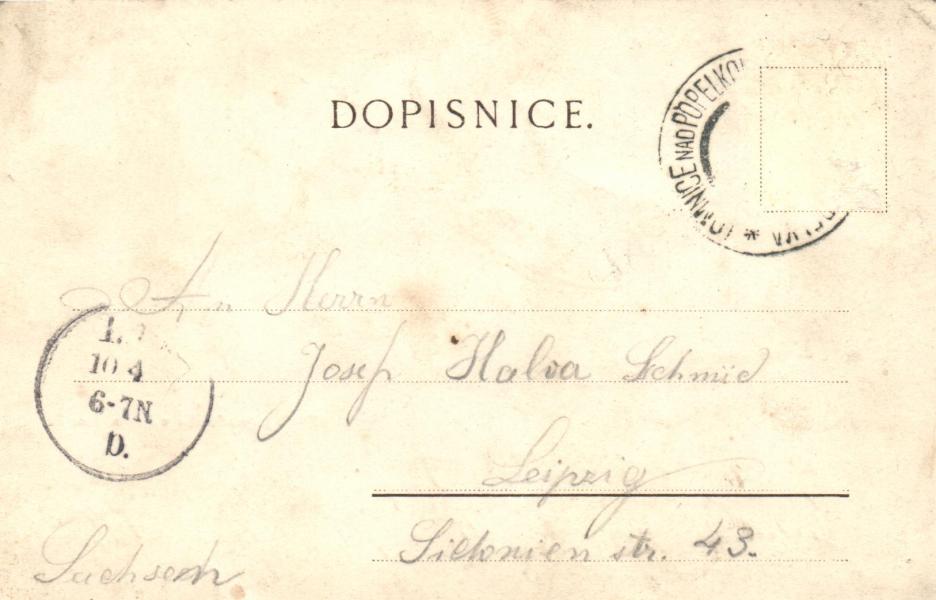 DOPISNICE.
LOMNICE NAD POPELKO
*
An Herrn
10 4
6-7N
D.
Josef Halva Schmied
Leipzig
Sidonien str. 43.
Sachsen